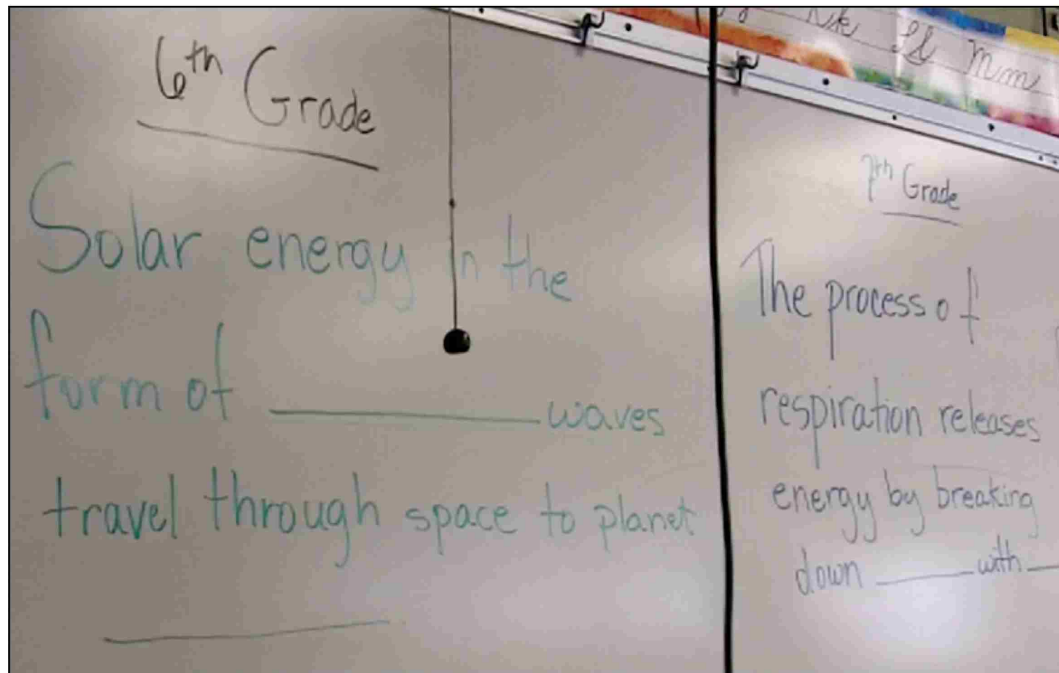 6th Grade
Solar energy in the
form of __________ waves
travel through space to planet
__________
Kk Ll Mm
7th Grade
The process of
respiration releases
energy by breaking
down ______ with __